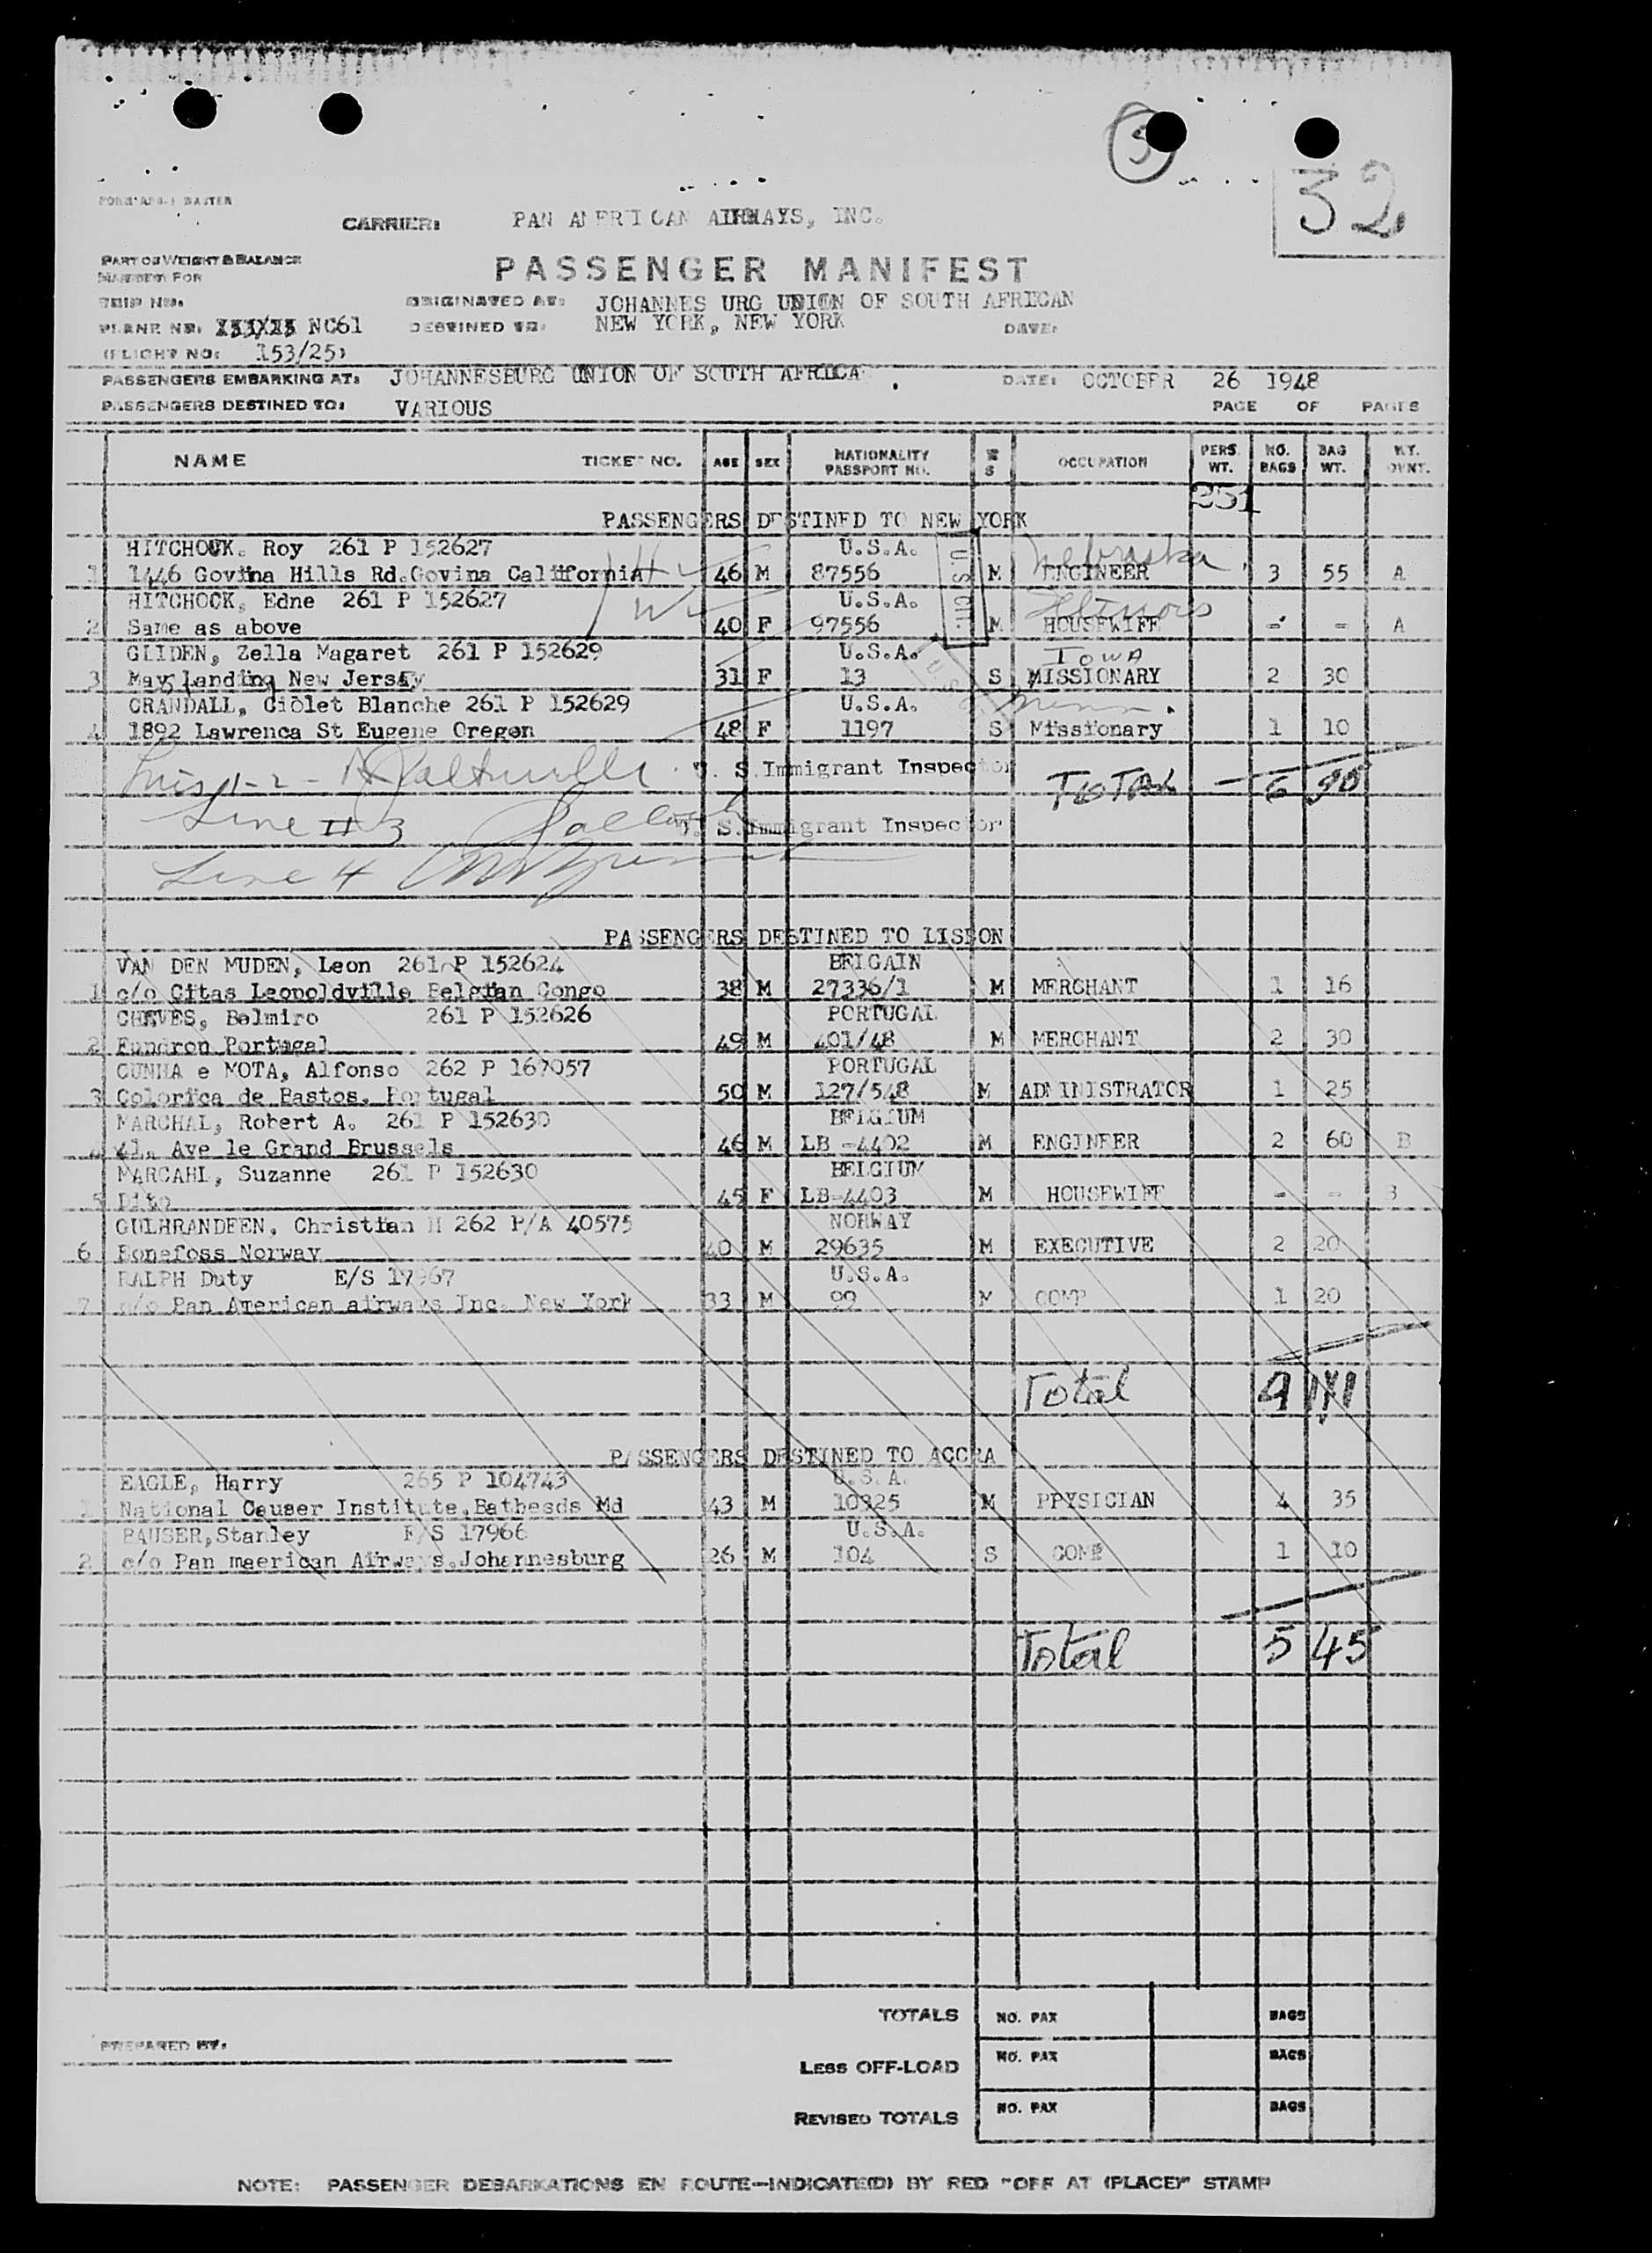 5
32
CARRIER: PAN AMERICAN AIRWAYS, INC.
PART OF WEIGHT & BALANCE
MANIFEST FOR
PASSENGER MANIFEST
TRIP NO.
ORIGINATED AT: JOHANNES URG UNION OF SOUTH AFRICAN
PLANE NO. NC61 DESTINED TO: NEW YORK, NEW YORK DATE:
(FLIGHT NO: 153/25)
PASSENGERS EMBARKING AT: JOHANNESBURG UNION OF SOUTH AFRICA DATE: OCTOBER 26 1948
PASSENGERS DESTINED TO: VARIOUS PAGE OF PAGES
NAME TICKET NO. AGE SEX NATIONALITY PASSPORT NO. M S OCCUPATION PERS. WT. NO. BAGS BAG WT.
251
PASSENGERS DESTINED TO NEW YORK
HITCHOCK. Roy 261 P 152627 U.S.A. Nebraska
1 1446 Govina Hills Rd.Govina California H 46 M 87556 M ENGINEER 3 55 A
HITCHOCK, Edne 261 P 152627 U.S.A. Illinois
2 Same as above W 40 F 97556 M HOUSEWIFE - - A
GLIDEN, Zella Magaret 261 P 152629 U.S.A. IOWA
3 May,landing New Jersey 31 F 13 S MISSIONARY 2 30
CRANDALL, Ciolet Blanche 261 P 152629 U.S.A. Minn.
4 1892 Lawrenca St Eugene Oregon 48 F 1197 S Missionary 1 10
U. S. Immigrant Inspector TOTAL - 6 90
Line 3 U. S. Immigrant Inspector
Line 4
PASSENGERS DESTINED TO LISBON
VAN DEN MUDEN, Leon 261 P 152624 BELGAIN
1 c/o Citas Leopoldville Belgian Congo 38 M 27336/1 M MERCHANT 1 16
CHAVES, Belmiro 261 P 152626 PORTUGAL
2 Fundron Portugal 49 M 401/48 M MERCHANT 2 30
CUNHA e MOTA, Alfonso 262 P 167057 PORTUGAL
3 Colorica de Bastos. Portugal 50 M 127/548 M ADMINISTRATOR 1 25
MARCHAL, Robert A. 261 P 152630 BELGIUM
4 41, Ave le Grand Brussels 46 M LB -4402 M ENGINEER 2 60 B
MARCAHL, Suzanne 261 P 152630 BELGIUM
5 Dito 45 F LB-4403 M HOUSEWIFE - - B
GULHRANDEEN, Christian H 262 P/A 40575 NORWAY
6 Honefoss Norway 40 M 29635 M EXECUTIVE 2 20
RALPH Duty E/S 17967 U.S.A.
7 c/o Pan American airways Inc. New York 33 M 99 M COMP 1 20
Total 9
PASSENGERS DESTINED TO ACCRA
EAGLE, Harry 265 P 104743 U.S.A.
1 National Causer Institute,Bathesds Md 43 M 10325 M PPYSICIAN 4 35
BAUSER,Stanley E/S 17966 U.S.A.
2 c/o Pan maerican Airways.Johannesburg 26 M 104 S COMP 1 10
Total 5 45
TOTALS NO. PAX BAGS
PREPARED BY:
LESS OFF-LOAD NO. PAX BAGS
REVISED TOTALS NO. PAX BAGS
NOTE: PASSENGER DEBARKATIONS EN ROUTE-INDICATE(D) BY RED "OFF AT (PLACE)" STAMP